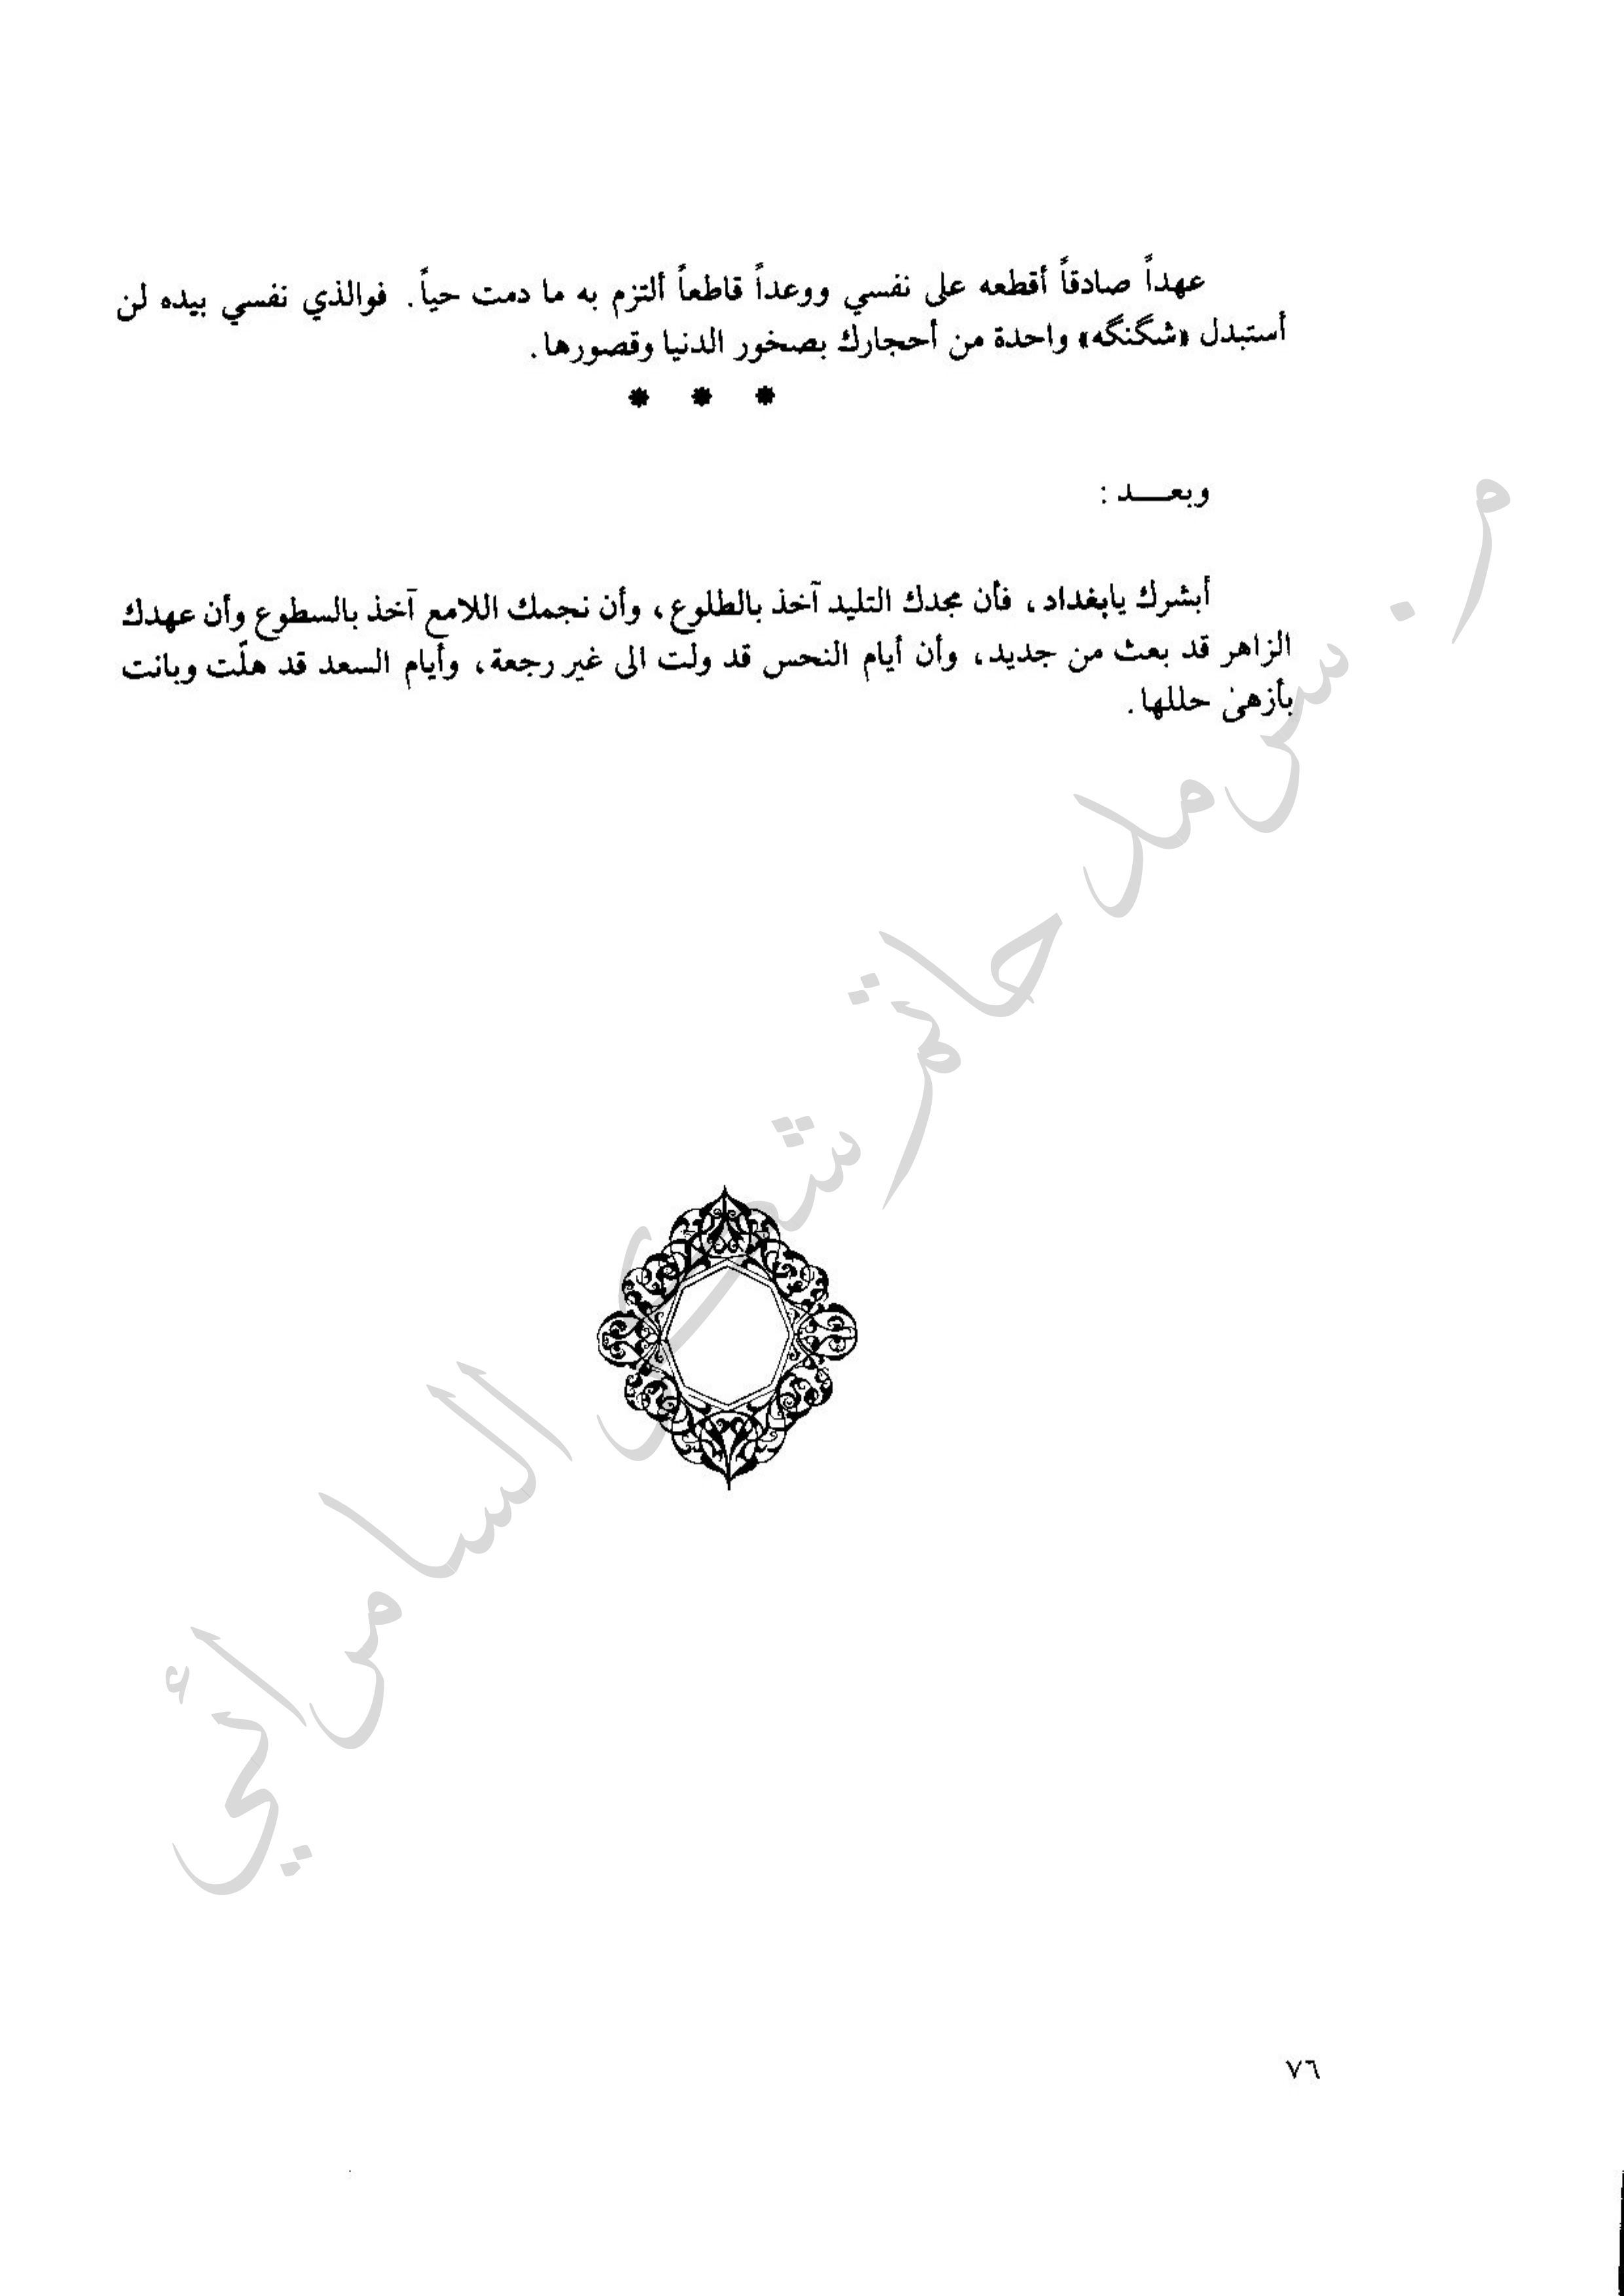 عهداً صادقاً أقطعه على نفسي ووعداً قاطعاً ألتزم به ما دمت حياً. فوالذي نفسي بيده لن
أستبدل «شگنگه» واحدة من أحجارك بصخور الدنيا وقصورها.
* * *
وبعـــد :
أبشرك يابغداد، فأن مجدك التليد آخذ بالطلوع، وأن نجمك اللامع آخذ بالسطوع وأن عهدك
الزاهر قد بعث من جديد، وأن أيام النحس قد ولت الى غير رجعة، وأيام السعد قد هلّت وبانت
بأزهىٰ حللها.
م. سرمد حاتم شكر السامرائي
٧٦